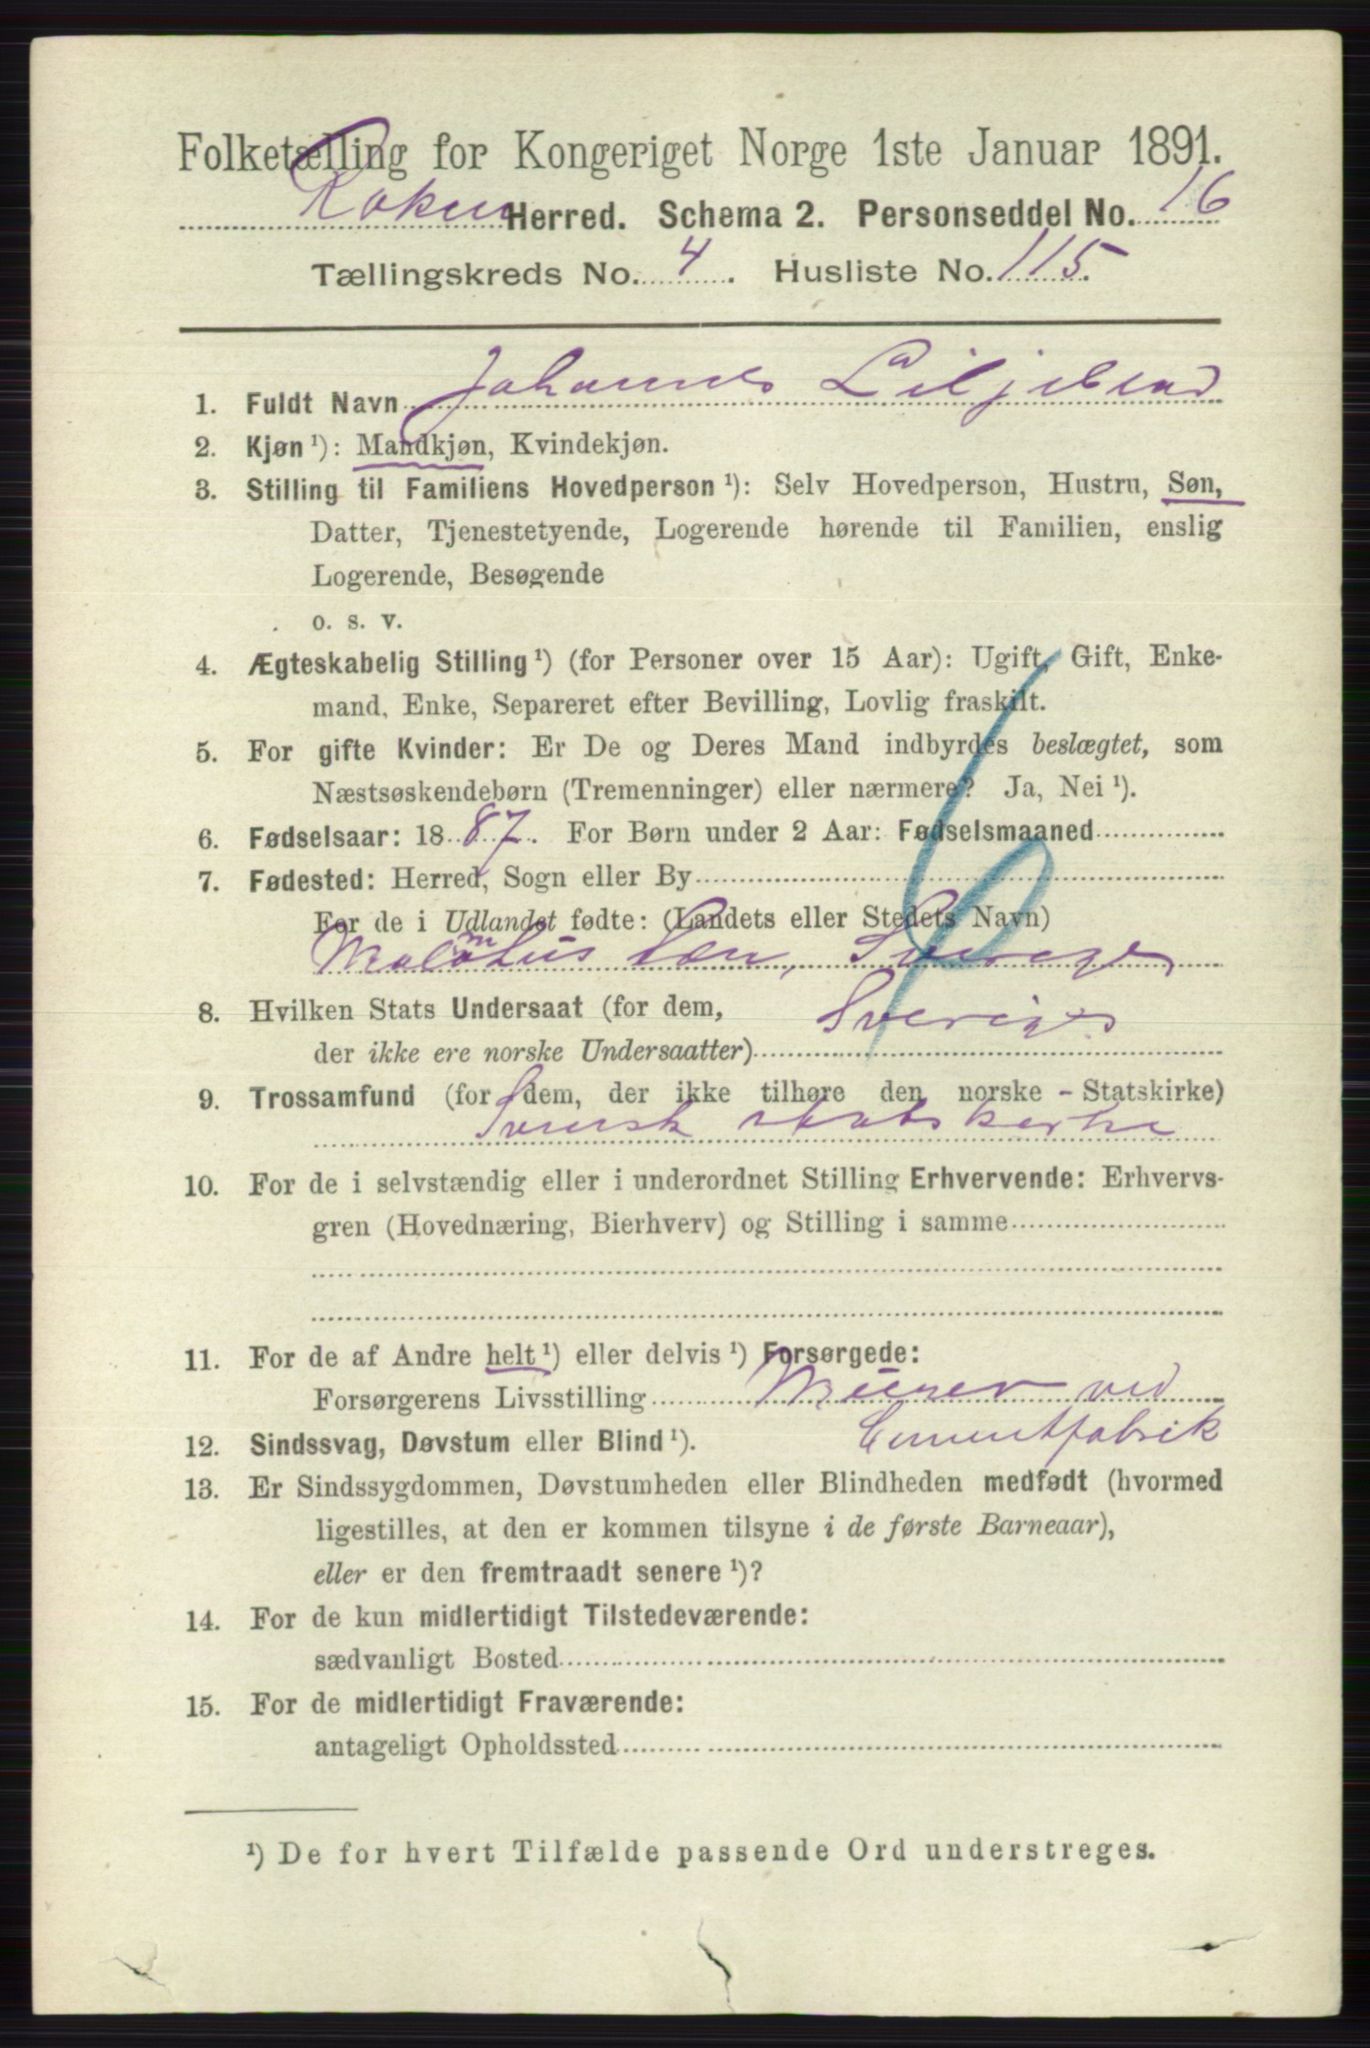 Folketælling for Kongeriget Norge 1ste Januar 1891.
Røken Herred. Schema 2. Personseddel No. 16
Tællingskreds No. 4. Husliste No. 115.
1. Fuldt Navn Johannes Liljeblad
2. Kjøn ¹): Mandkjøn, Kvindekjøn.
3. Stilling til Familiens Hovedperson ¹): Selv Hovedperson, Hustru, Søn,
Datter, Tjenestetyende, Logerende hørende til Familien, enslig
Logerende, Besøgende
o. s. v.
4. Ægteskabelig Stilling ¹) (for Personer over 15 Aar): Ugift, Gift, Enke-
mand, Enke, Separeret efter Bevilling, Lovlig fraskilt.
5. For gifte Kvinder: Er De og Deres Mand indbyrdes beslægtet, som
Næstsøskendebørn (Tremenninger) eller nærmere? Ja, Nei ¹).
6. Fødselsaar: 1887. For Børn under 2 Aar: Fødselsmaaned
7. Fødested: Herred, Sogn eller By
For de i Udlandet fødte: (Landets eller Stedets Navn)
Malmöhus Læn, Sverige
8. Hvilken Stats Undersaat (for dem, Sverige
der ikke ere norske Undersaatter)
9. Trossamfund (for dem, der ikke tilhøre den norske - Statskirke)
Svensk statskirke
10. For de i selvstændig eller i underordnet Stilling Erhvervende: Erhvervs-
gren (Hovednæring, Bierhverv) og Stilling i samme
11. For de af Andre helt ¹) eller delvis ¹) Forsørgede:
Forsørgerens Livsstilling Murer ved
Cementfabrik
12. Sindssvag, Døvstum eller Blind ¹).
13. Er Sindssygdommen, Døvstumheden eller Blindheden medfødt (hvormed
ligestilles, at den er kommen tilsyne i de første Barneaar),
eller er den fremtraadt senere ¹)?
14. For de kun midlertidigt Tilstedeværende:
sædvanligt Bosted
15. For de midlertidigt Fraværende:
antageligt Opholdssted
¹) De for hvert Tilfælde passende Ord understreges.